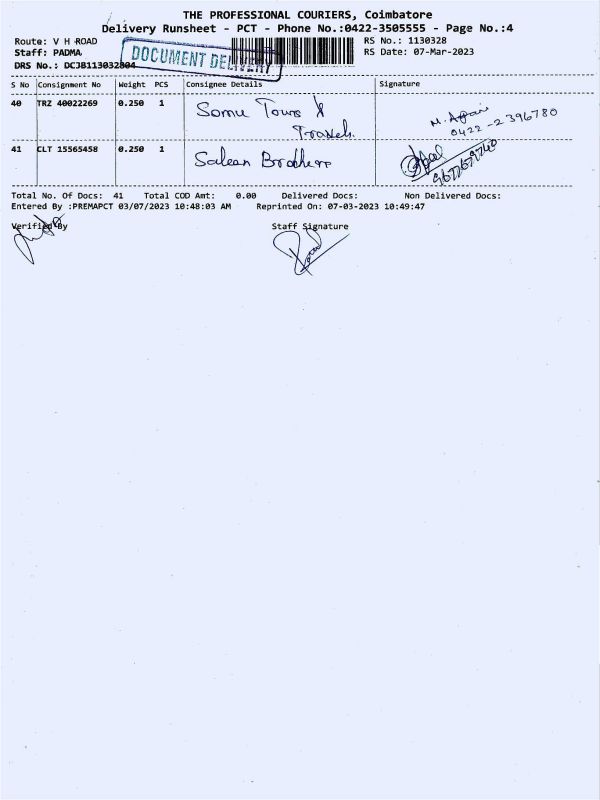 THE PROFESSIONAL COURIERS, Coimbatore
Delivery Runsheet - PCT - Phone No.:0422-3505555 - Page No.:4
Route: V H ROAD
Staff: PADMA
DRS No.: DCJB113032804
DOCUMENT DELIVERY
RS No.: 1130328
RS Date: 07-Mar-2023
S No Consignment No Weight PCS Consignee Details Signature
40 TRZ 40022269 0.250 1 Somu Tours & Travels. 0422-2396780
41 CLT 15565458 0.250 1 Salean Brothers
Total No. Of Docs: 41 Total COD Amt: 0.00 Delivered Docs: Non Delivered Docs:
Entered By :PREMAPCT 03/07/2023 10:48:03 AM Reprinted On: 07-03-2023 10:49:47
Verified By Staff Signature